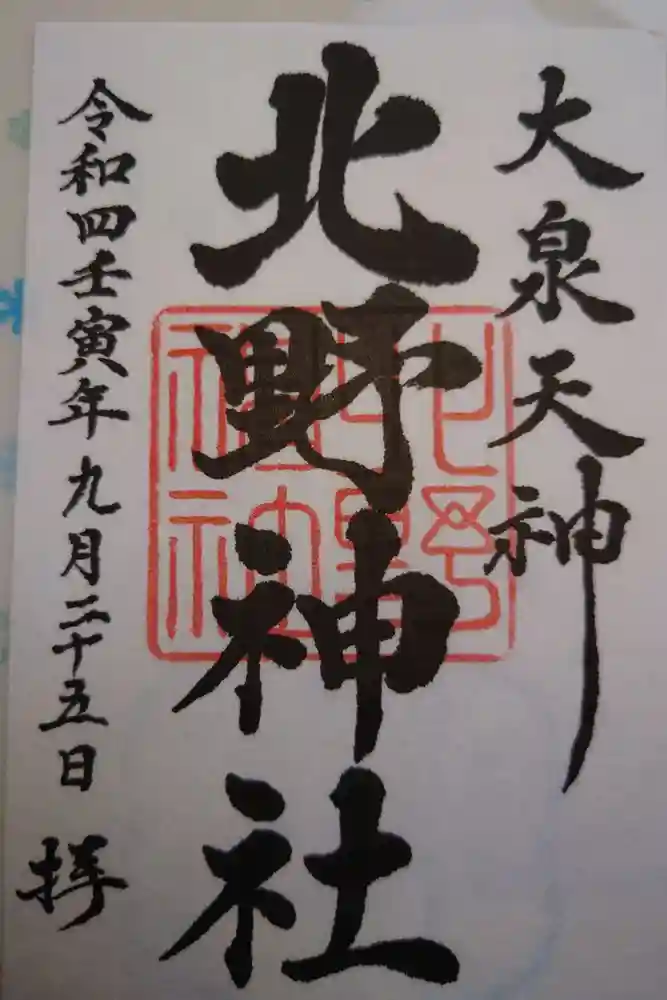 大泉天神
北野神社
令和四壬寅年九月二十五日 拝